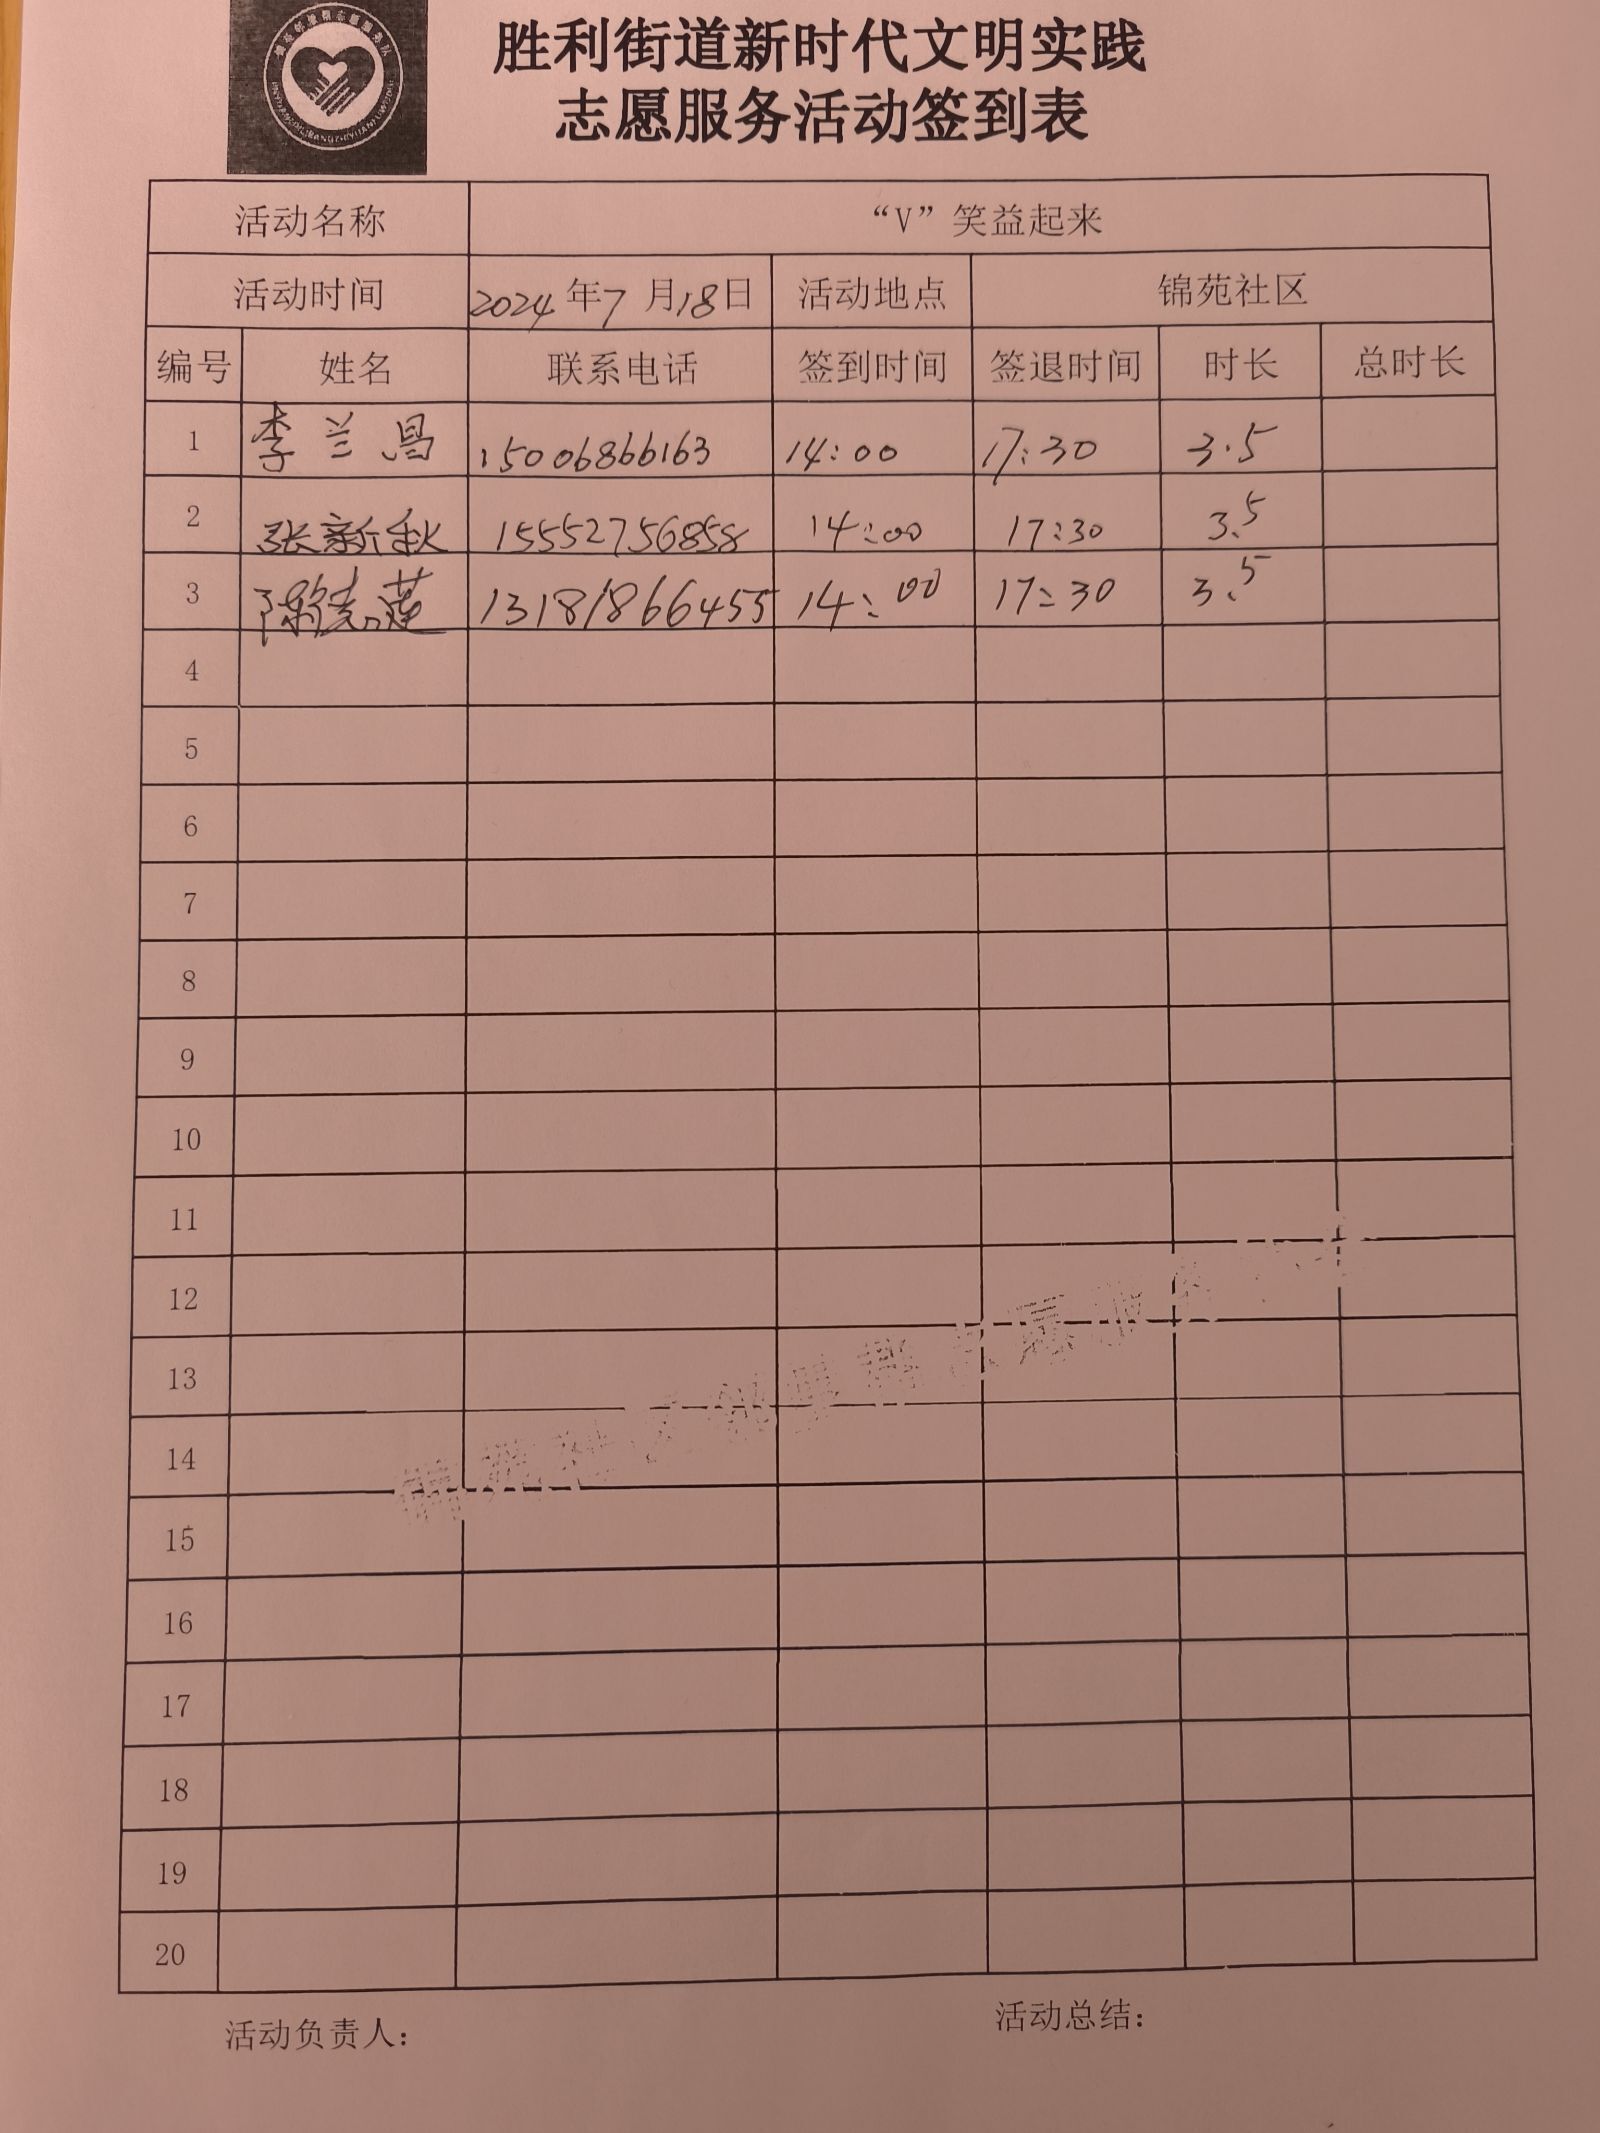 胜利街道新时代文明实践
志愿服务活动签到表
活动名称 “V”笑益起来
活动时间 2024年7月18日 活动地点 锦苑社区
编号 姓名 联系电话 签到时间 签退时间 时长 总时长
1 李兰昌 15006866163 14:00 17:30 3.5
2 张新秋 15552756858 14:00 17:30 3.5
3 陈 莲 13181866455 14:00 17:30 3.5
4
5
6
7
8
9
10
11
12
13
14
15
16
17
18
19
20
活动负责人： 活动总结：